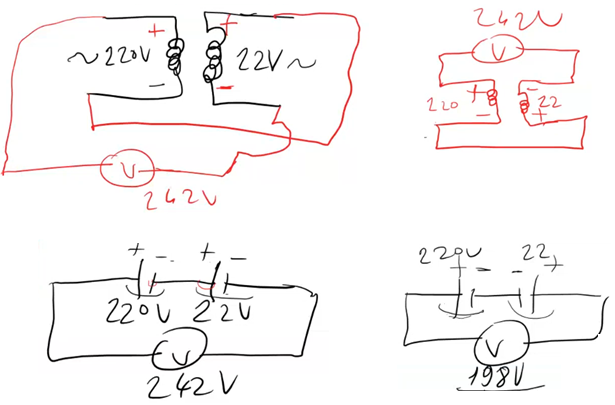 + +
~220V 22V~
- -
V
242V
242V
V
220 + - 22
- +
+ - + -
220V 22V
V
242V
220V 22
+ - - +
V
198V